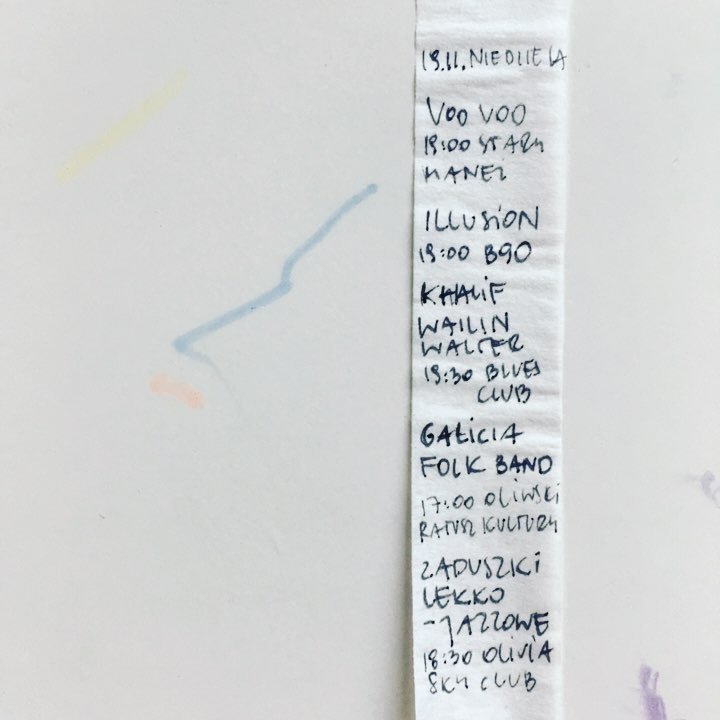 19.11. NIEDZIELA
VOO VOO
19:00 STARY
MANEŻ
ILLUSION
19:00 B90
KHALIF
WAILIN
WALTER
19:30 BLUES
CLUB
GALICIA
FOLK BAND
17:00 OLIWSKI
RATUSZ KULTURY
ZADUSZKI
LEKKO
-JAZZOWE
18:30 OLIVIA
SKY CLUB